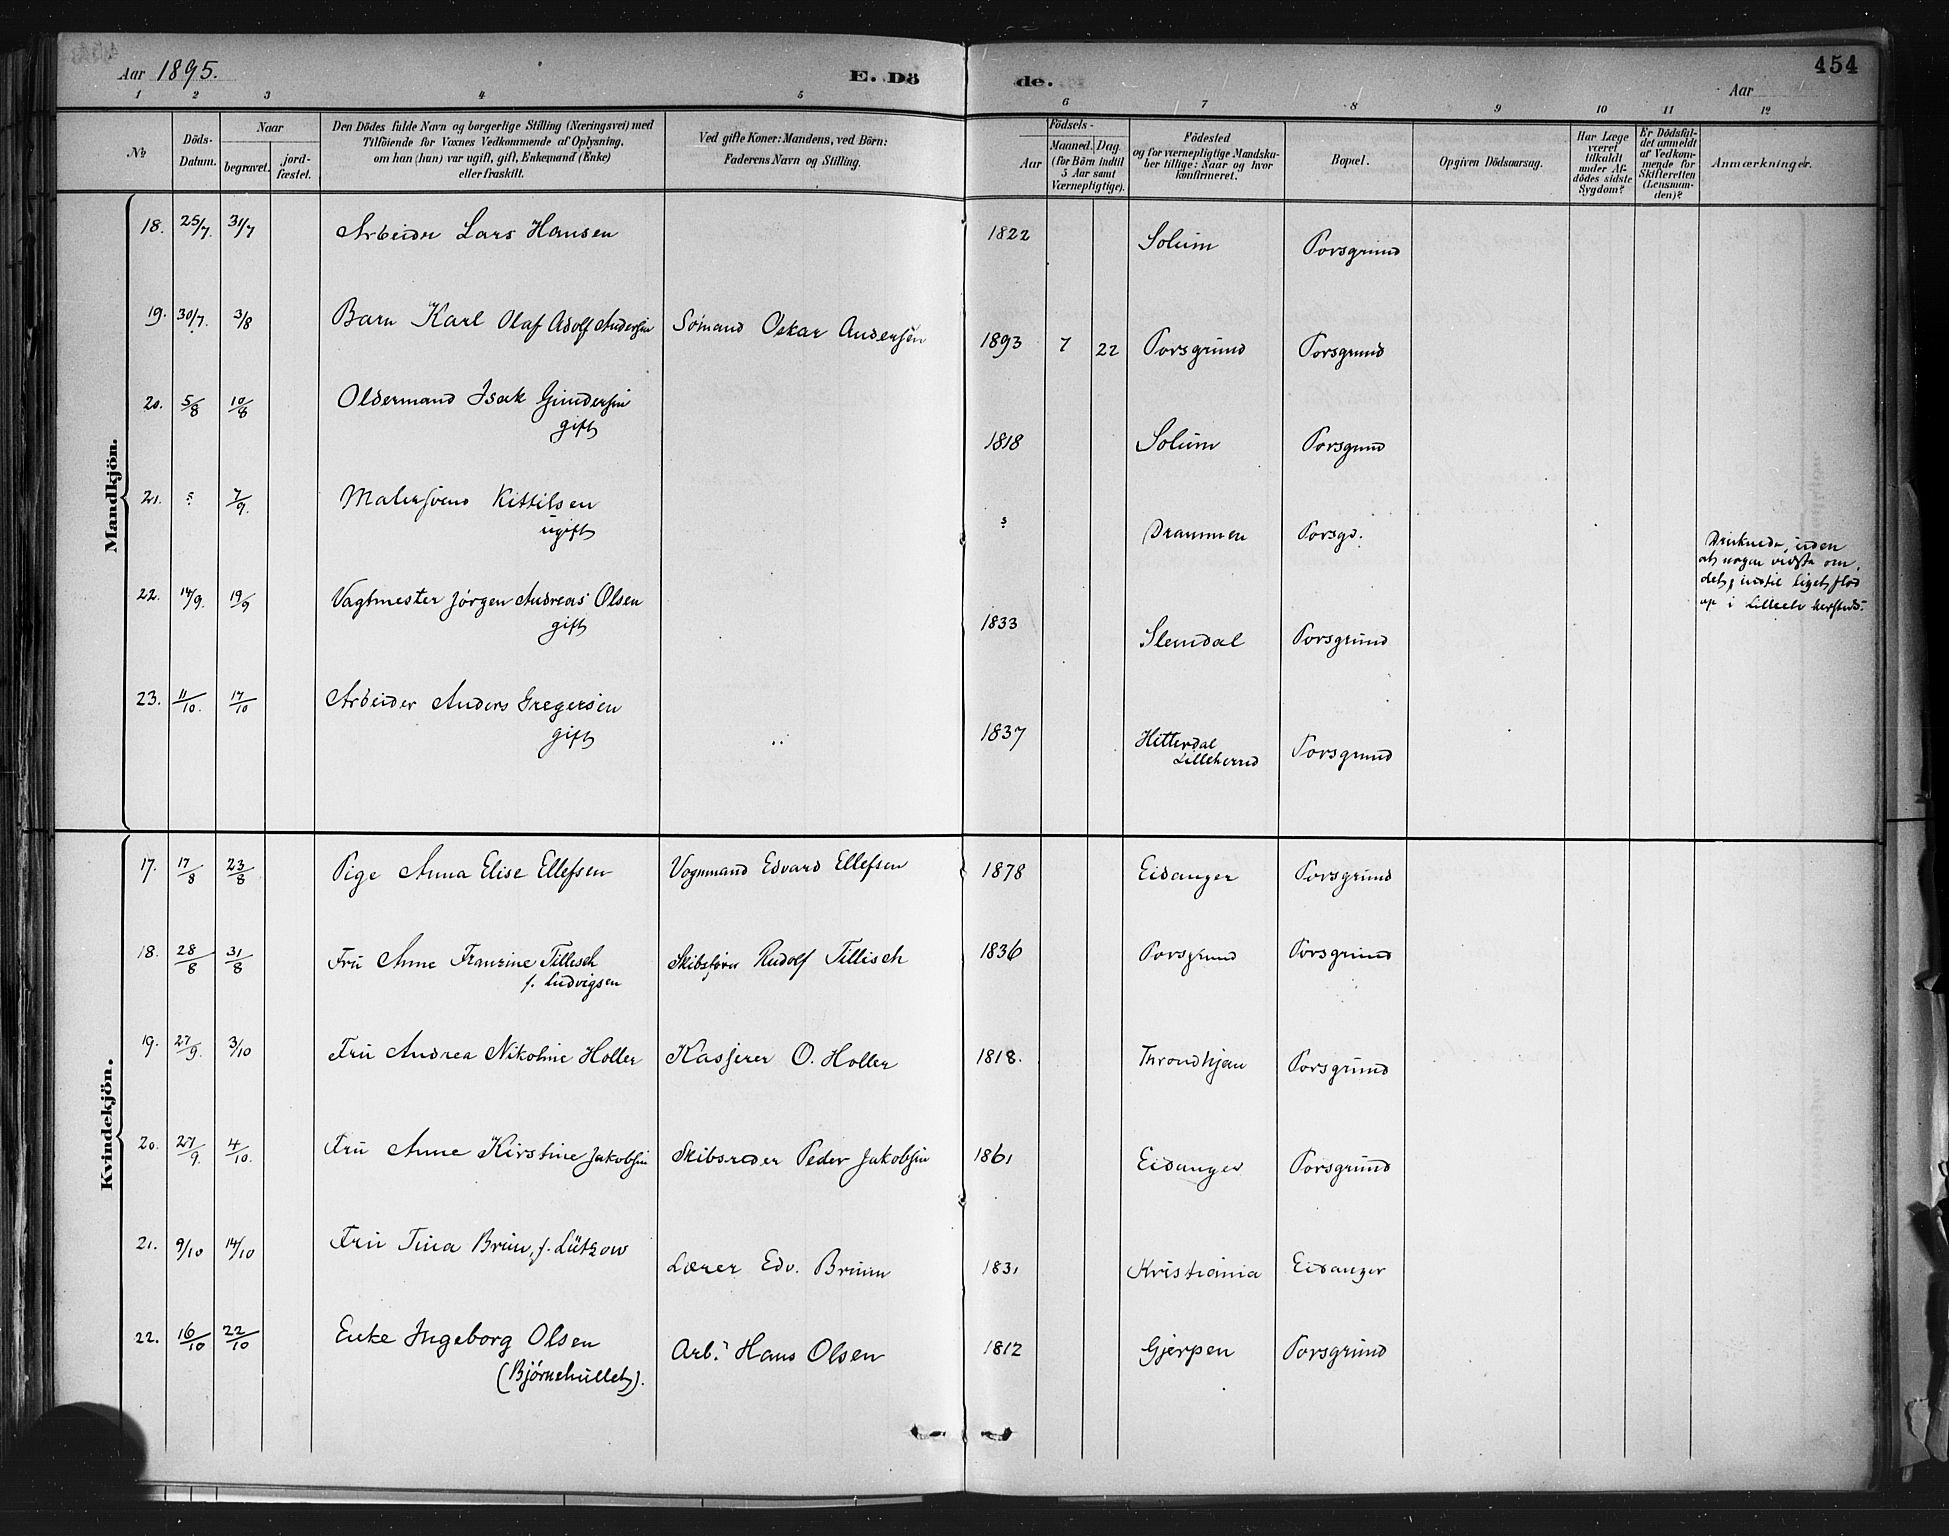 Aar 1895. E. Dö de. Aar 454
1 2 3 4 5 6 7 8 9 10 11 12
No Döds-Datum. Naar begravet. jord-fæstet.
Den Dödes fulde Navn og borgerlige Stilling (Næringsvei) med
Tilföiende for Voxnes Vedkommende af Oplysning,
om han (hun) var ugift, gift, Enkemand (Enke)
eller fraskilt.
Ved gifte Koner: Mandens, ved Börn:
Faderens Navn og Stilling.
Födsels-
Aar Maaned. Dag.
(for Börn indtil
5 Aar samt
Værnepligtige).
Födested
og for værnepligtige Mandska-
ber tillige: Naar og hvor
konfirmeret.
Bopæl.
Opgiven Dödsaarsag.
Har Læge
været
tilkaldt
under Af-
dödes sidste
Sygdom?
Er Dödsfal-
det anmeldt
af Vedkom-
mende for
Skifteretten
(Lensman-
den)?
Anmærkninger.
Mandkjön.
18. 25/7. 31/7 Arbeider Lars Hansen 1822 Solum Porsgrund
19. 30/7. 3/8 Barn Karl Olaf Adolf Andersen Sømand Oskar Andersen 1893 7 22 Porsgrund Porsgrund
20. 5/8 10/8 Oldermand Isak Gundersen
gift 1818 Solum Porsgrund
21. 7/9. Malersvend Kittilsen
ugift Drammen Porsgd.
Druknede, uden
at nogen vidste om
det, indtil Liget flød
op i Lilleelv
22. 14/9. 19/9 Vagtmester Jørgen Andreas Olsen
gift 1833 Slemdal Porsgrund
23. 11/10. 17/10 Arbeider Anders Gregersen
gift 1837 Hitterdal
Lilleherred Porsgrund
Kvindekjön.
17. 17/8 23/8 Pige Anna Elise Ellefsen Vognmand Edvard Ellefsen 1878 Eidanger Porsgrund
18. 28/8 31/8 Fru Anne Franzine Tillisch
f. Ludvigsen Skibsfører Rudolf Tillisch 1836 Porsgrund Porsgrund
19. 27/9. 3/10 Fru Andrea Nikoline Holler Kasserer O. Holler 1818. Throndhjem Porsgrund
20. 27/9. 4/10. Fru Anne Kirstine Jakobsen Skibsreder Peder Jakobsen 1861 Eidanger Porsgrund
21. 9/10 14/10 Fru Tina Bruun, f. Lützow Lærer Edv. Bruun 1831 Kristiania Eidanger
22. 16/10 22/10 Enke Ingeborg Olsen
(Bjørnehullet). Arb. Hans Olsen 1812 Gjerpen Porsgrund